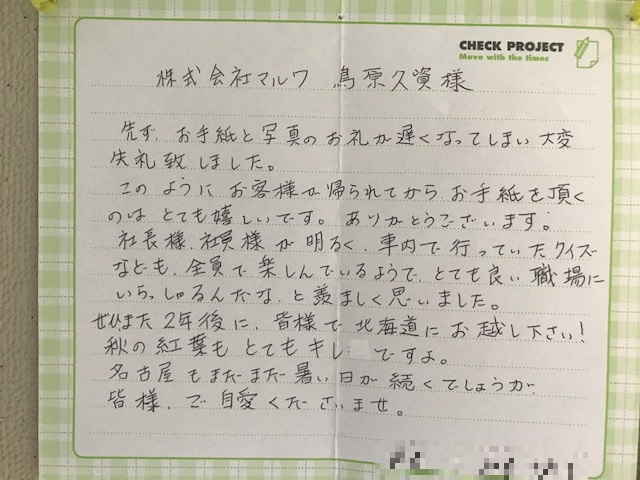 CHECK PROJECT
Move with the times
株式会社マルワ 鳥原久資様
先ず、お手紙と写真のお礼が遅くなってしまい大変
失礼致しました。
このように お客様が帰られてから お手紙を頂く
のは とても嬉しいです。ありがとうございます!
社長様、社員様が明るく、車内で行っていたクイズ
なども、全員で楽しんでいるようで、とても良い職場に
いらっしゅるんだな、と羨ましく思いました。
ぜひまた2年後に、皆様で北海道にお越し下さい!
秋の紅葉もとてもキレ ですよ。
名古屋もまだまだ暑い日が続くでしょうが、
皆様、ご自愛くださいませ。